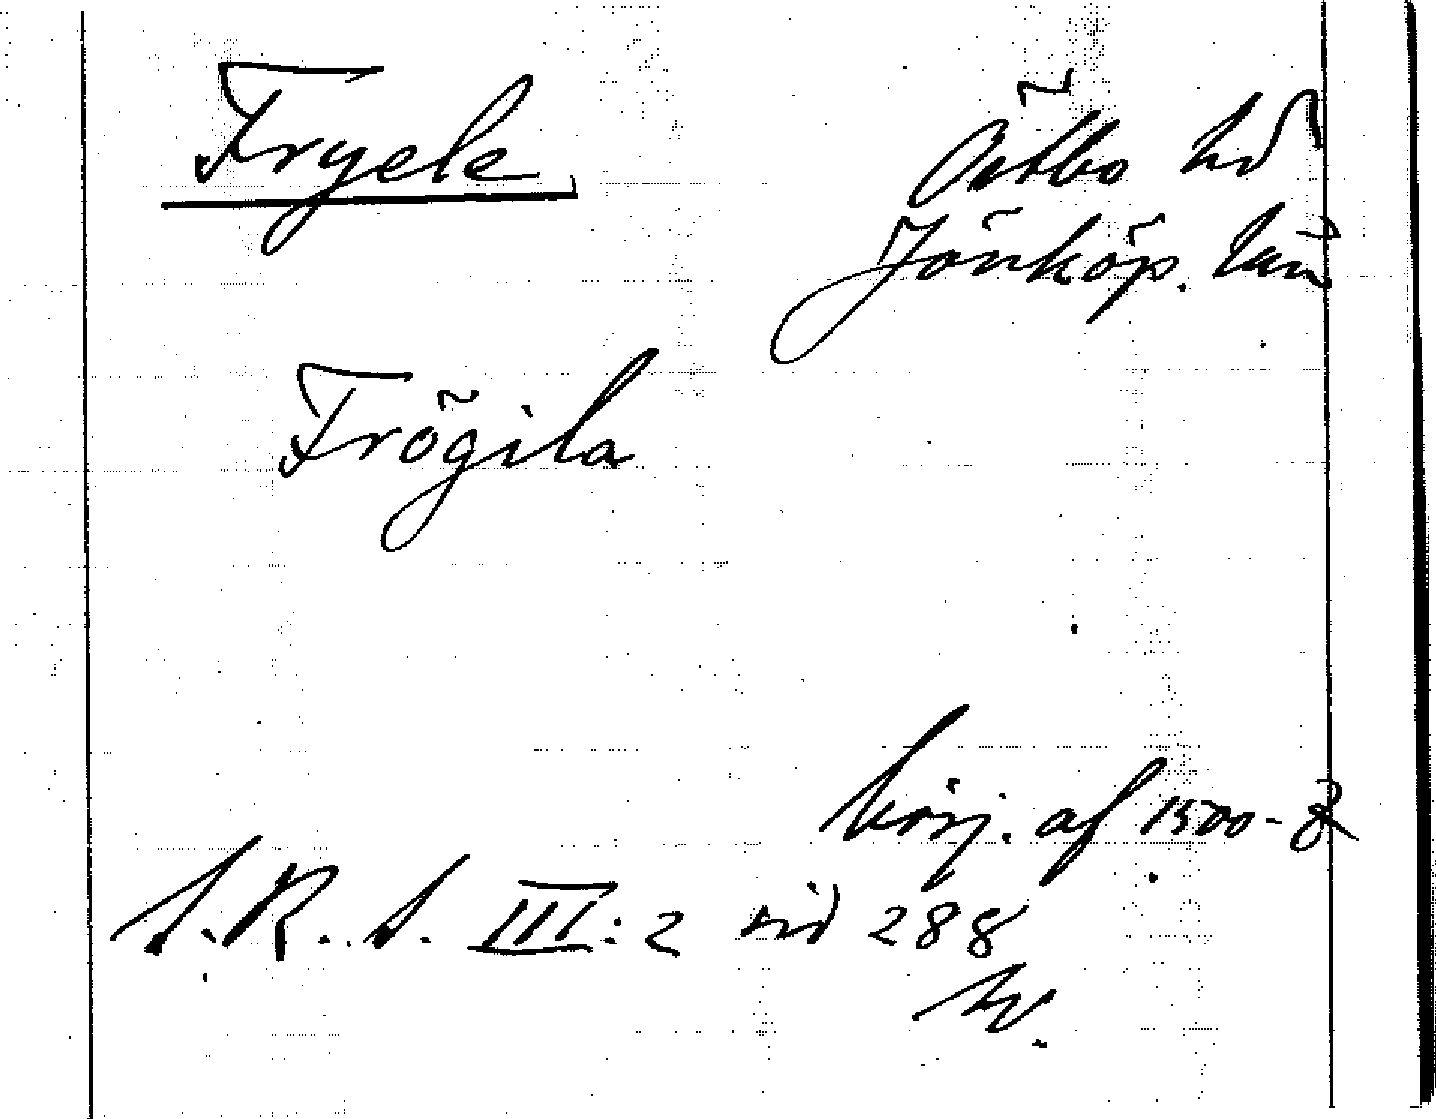 Fryele
Östbo hd
Jönköp. län
Frögila
börj. af 1500-t
S.R.S. III:2 sid 288